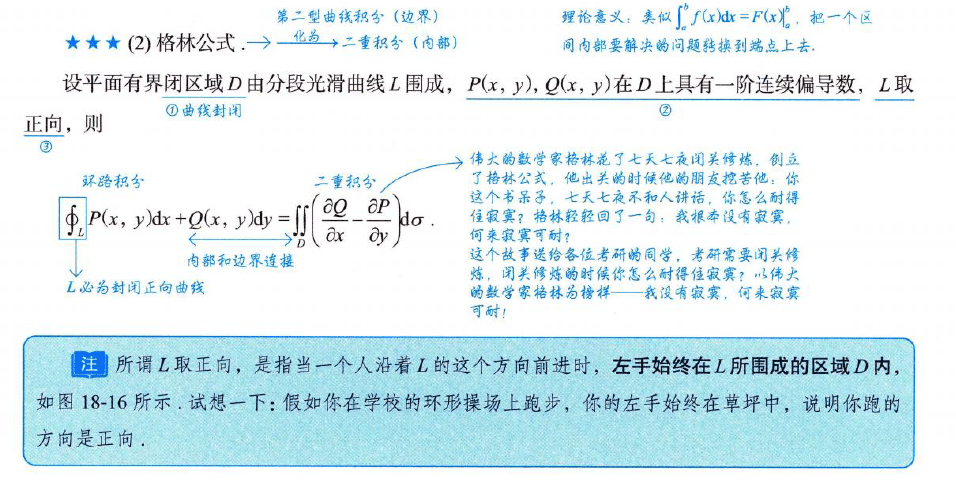 第二型曲线积分（边界）
理论意义：类似∫ₐᵇ f(x)dx = F(x)|ₐᵇ，把一个区
★★★ (2) 格林公式. → 化为 二重积分（内部）
间内部要解决的问题转换到端点上去.
设平面有界闭区域 D 由分段光滑曲线 L 围成，P(x, y), Q(x, y)在 D 上具有一阶连续偏导数，L 取
①曲线封闭
②
正向，则
③
环路积分
二重积分
∮_L P(x, y)dx + Q(x, y)dy = ∬_D (∂Q/∂x − ∂P/∂y)dσ .
内部和边界连接
L 必为封闭正向曲线
伟大的数学家格林花了七天七夜闭关修炼，创立
了格林公式，他出关的时候他的朋友挖苦他：你
这个书呆子，七天七夜不和人讲话，你怎么耐得
住寂寞？格林轻轻回了一句：我根本没有寂寞，
何来寂寞可耐？
这个故事送给各位考研的同学，考研需要闭关修
炼，闭关修炼的时候你怎么耐得住寂寞？以伟大
的数学家格林为榜样——我没有寂寞，何来寂寞
可耐！
注 所谓 L 取正向，是指当一个人沿着 L 的这个方向前进时，左手始终在 L 所围成的区域 D 内，
如图 18-16 所示 . 试想一下：假如你在学校的环形操场上跑步，你的左手始终在草坪中，说明你跑的
方向是正向 .